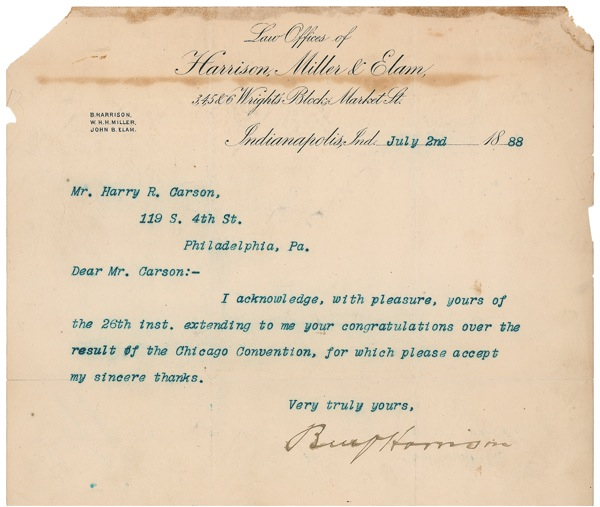 Law Offices of
Harrison, Miller & Elam,
3,4,5 & 6 Wright's Block, Market St.
B. HARRISON,
W. H. H. MILLER,
JOHN B. ELAM.
Indianapolis, Ind. July 2nd 1888
Mr. Harry R. Carson,
119 S. 4th St.
Philadelphia, Pa.
Dear Mr. Carson:-
I acknowledge, with pleasure, yours of
the 26th inst. extending to me your congratulations over the
result of the Chicago Convention, for which please accept
my sincere thanks.
Very truly yours,
Benj Harrison